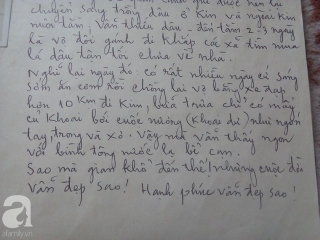 chuyển sang trồng dâu ở Kim và ngoài Kim
nuôi tằm. Vẫn thiếu dâu - đôi tầm 2-3 ngày
là vợ đôi gánh đi khắp các xã tìm mua
lá dâu tận tối chưa về nhà.
Nghĩ lại ngày đó. có rất nhiều ngày cứ sáng
sớm ăn cơm rồi chồng lai vợ bằng xe đạp
hơn 10 Km đi Kim, buổi trưa chỉ có mấy
củ khoai bới cuốc nương (khoai dư) như ngón
tay, trong và xỏ. Vậy mà vẫn thấy ngon
với bình tông nước lạ bề con.
Sao mà gian khổ đến thế! nhưng cuộc đời
vẫn đẹp sao! Hạnh phúc vẫn đẹp sao!
a
afamily.vn